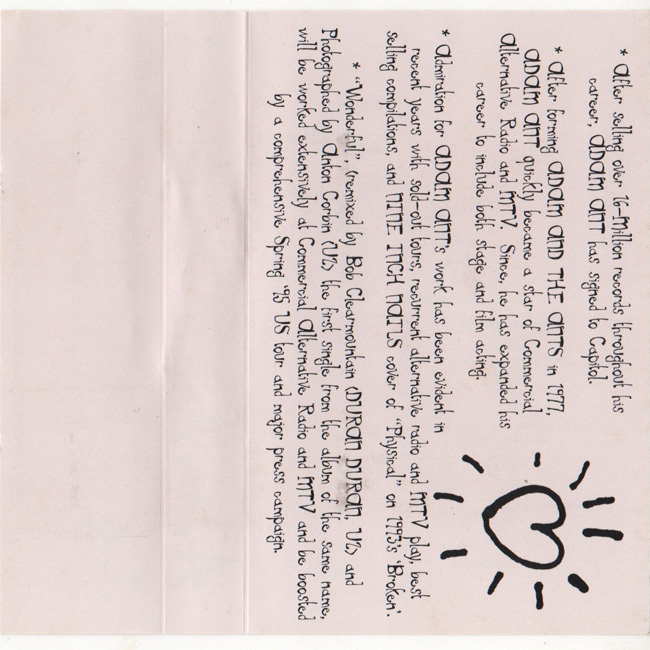 * After selling over 16-Million records throughout his
career, ADAM ANT has signed to Capitol.
* After forming ADAM AND THE ANTS in 1977,
ADAM ANT quickly became a star of Commercial
Alternative Radio and MTV. Since, he has expanded his
career to include both stage and film acting.
* Admiration for ADAM ANT's work has been evident in
recent years with sold-out tours, recurrent alternative radio and MTV play, best
selling compilations, and NINE INCH NAILS cover of "Physical" on 1993's 'Broken'.
* "Wonderful", (remixed by Bob Clearmountain (DURAN DURAN, U2) and
Photographed by Anton Corbin (U2), the first single from the album of the same name,
will be worked extensively at Commercial Alternative Radio and MTV and be boosted
by a comprehensive Spring '95 US tour and major press campaign.